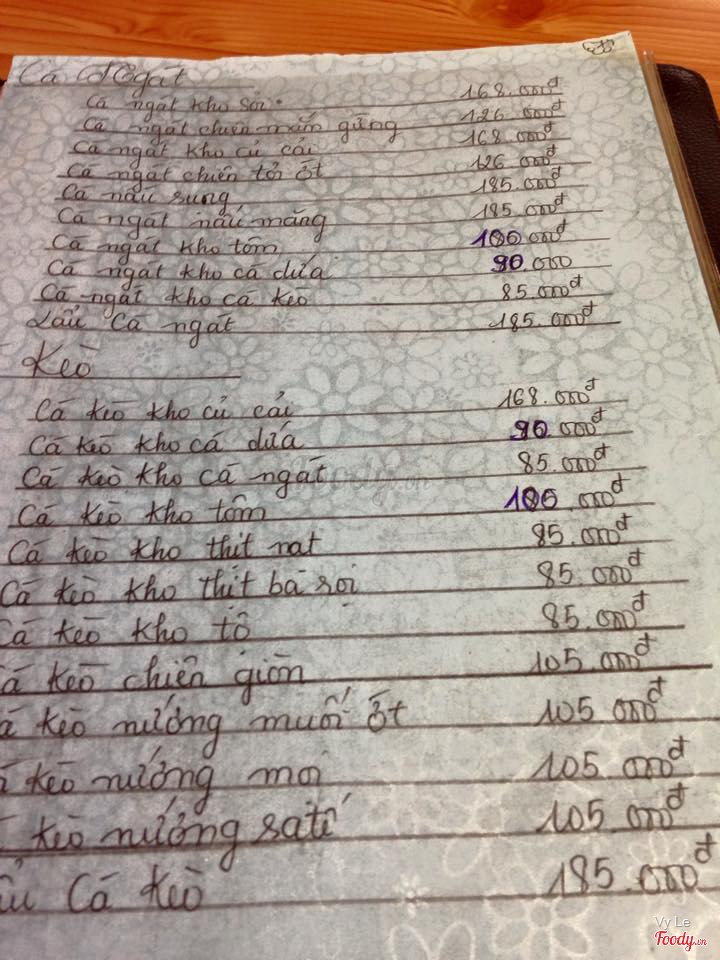 Cá Ngát
Cá ngát kho sỏi 168.000đ
Cá ngát chiên mắm gừng 126.000đ
Cá ngát kho củ cải 168.000đ
Cá ngát chiên tỏi ớt 126.000đ
Cá nấu sung 185.000đ
Cá ngát nấu măng 185.000đ
Cá ngát kho tôm 100.000đ
Cá ngát kho cá dứa 90.000
Cá ngát kho cá kèo 85.000đ
Lẩu Cá ngát 185.000đ
Kèo
Cá kèo kho củ cải 168.000đ
Cá kèo kho cá dứa 90.000đ
Cá kèo kho cá ngát 85.000đ
Cá kèo kho tôm 100.000đ
Cá kèo kho thịt nạt 85.000đ
Cá kèo kho thịt ba rọi 85.000đ
Cá kèo kho tộ 85.000đ
Cá kèo chiên giòn 105.000đ
kèo nướng muối ớt 105.000đ
kèo nướng mọi 105.000đ
kèo nướng satế 105.000đ
Cá kèo 185.000đ
Vy Le
Foody.vn